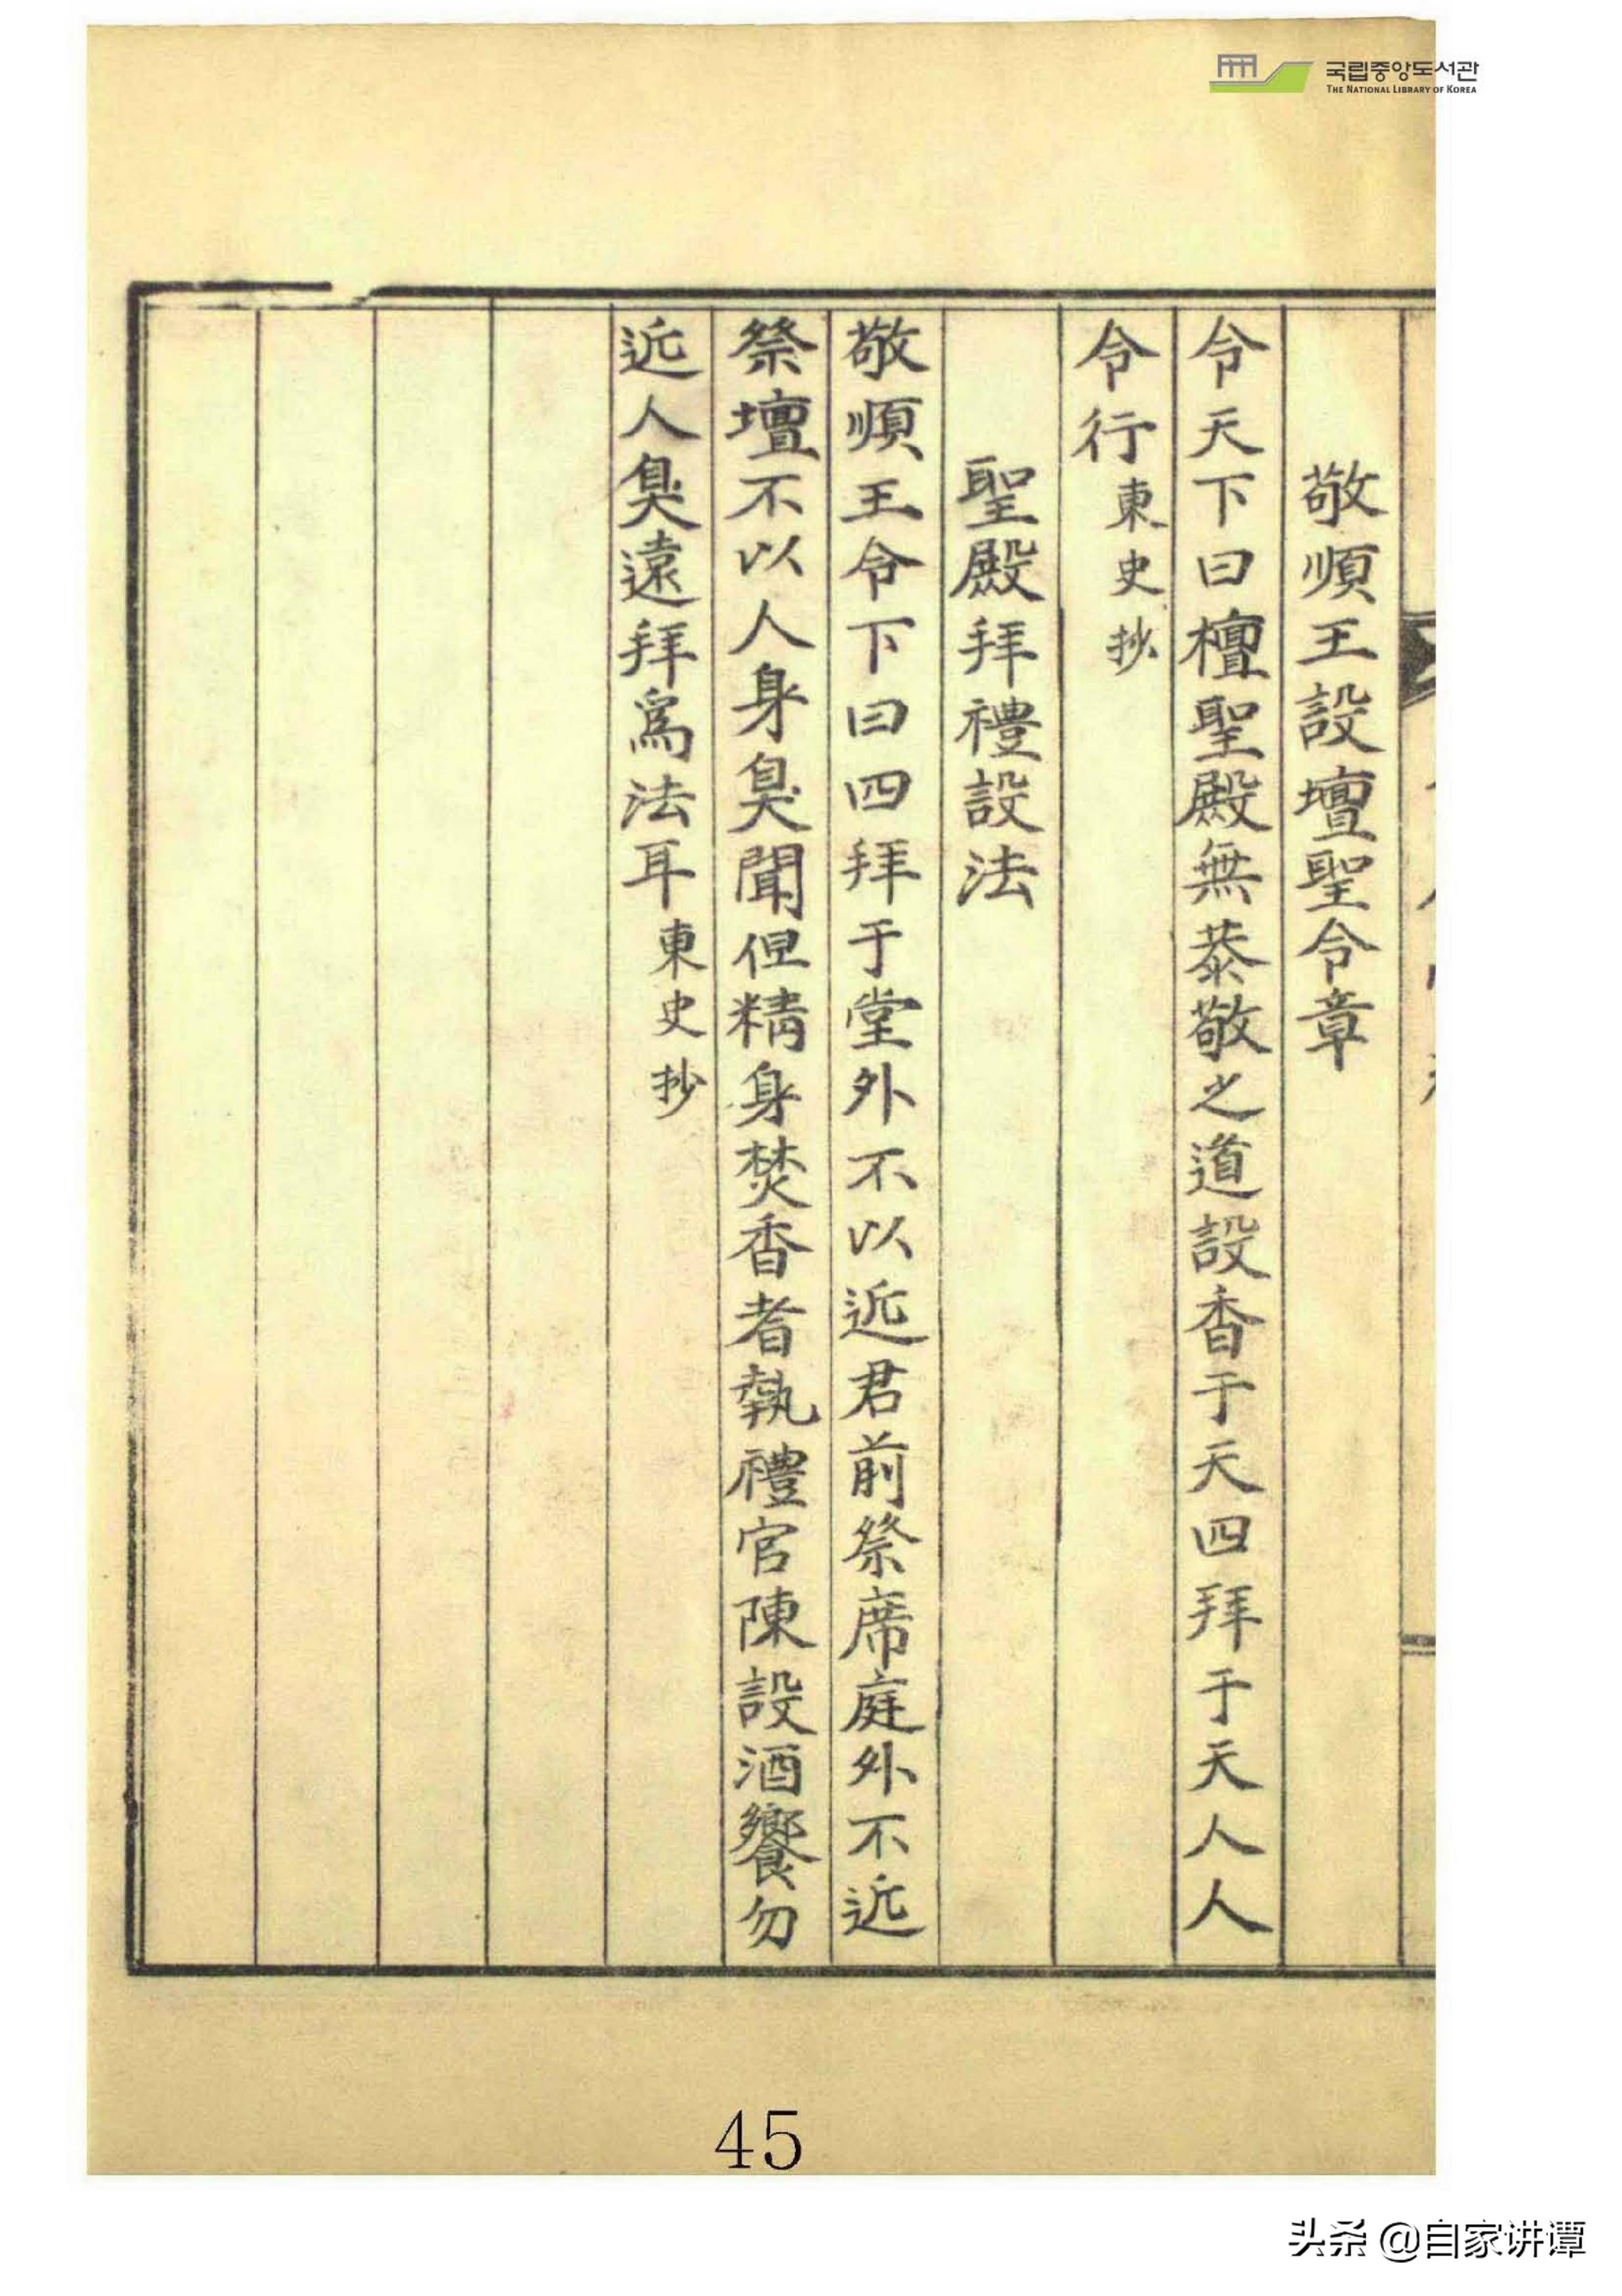 국립중앙도서관
THE NATIONAL LIBRARY OF KOREA
敬順王設壇聖令章
令天下曰檀聖殿無恭敬之道設香于天四拜于天人人
令行東史抄
聖殿拜禮設法
敬順王令下曰四拜于堂外不以近君前祭席庭外不近
祭壇不以人身臭聞但精身焚香者執禮官陳設酒饗勿
近人臭遠拜爲法耳東史抄
45
头条 @自家讲谭